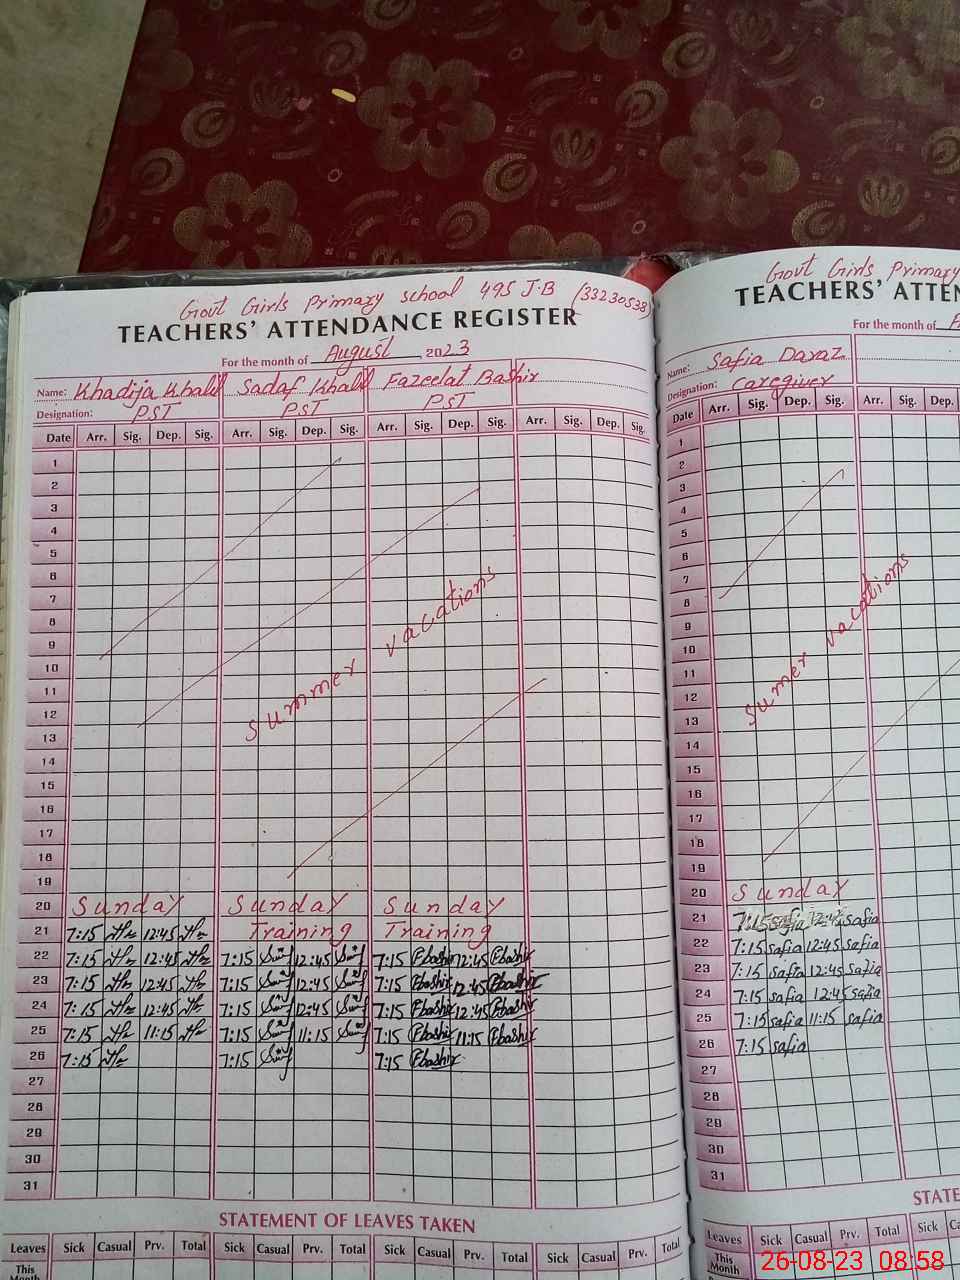 Govt Girls Primary school 495 J.B (33230538)
TEACHERS' ATTENDANCE REGISTER
For the month of August 2023
Name: Khadija Khalil Sadaf Khalil Fazeelat Bashir
Designation: PST PST PST
Date Arr. Sig. Dep. Sig. Arr. Sig. Dep. Sig. Arr. Sig. Dep. Sig. Arr. Sig. Dep. Sig.
1
2
3
4
5
6
7
8
9
10
11
12
13
14
15
16
17
18
19
Summer vacations
20 Sunday Sunday Sunday
21 7:15 12:45 Training Training
22 7:15 12:45 7:15 12:45 7:15 Fbashir 12:45 Fbashir
23 7:15 12:45 7:15 12:45 7:15 Fbashir 12:45 Fbashir
24 7:15 12:45 7:15 12:45 7:15 Fbashir 12:45 Fbashir
25 7:15 11:15 7:15 11:15 7:15 Fbashir 11:15 Fbashir
26 7:15 7:15 7:15 Fbashir
27
28
29
30
31
STATEMENT OF LEAVES TAKEN
Leaves Sick Casual Prv. Total Sick Casual Prv. Total Sick Casual Prv. Total Sick Casual Prv. Total
This
Month
Govt Girls Primary
TEACHERS' ATTEN
For the month of
Name: Safia Daraz
Designation: Caregiver
Date Arr. Sig. Dep. Sig. Arr. Sig. Dep.
1
2
3
4
5
6
7
8
9
10
11
12
13
14
15
16
17
18
19
Sumer vacations
20 Sunday
21 7:15 safia 12:45 safia
22 7:15 safia 12:45 safia
23 7:15 safia 12:45 safia
24 7:15 safia 12:45 safia
25 7:15 safia 11:15 safia
26 7:15 safia
27
28
29
30
31
STATE
Leaves Sick Casual Prv. Total Sick Ca
This
Month
26-08-23 08:58